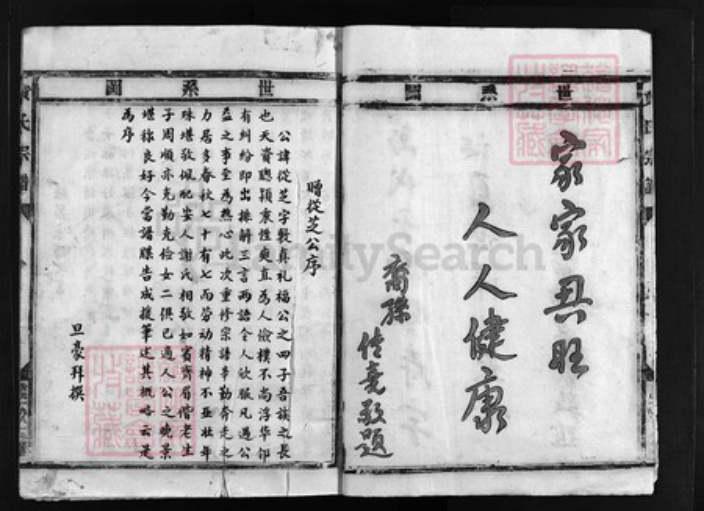 世系圖
家家興旺
人人健康
裔孫佳堯敬題
世系圖
贈從芝公序
公諱從芝字敦真礼福公之四子吾族之長
也天資聰穎秉性爽直為人儉樸不尚浮华邻
有糾紛即出排解三言两語令人欣服凡遇公
益之事至為熱心此次重修宗譜事勤奔走之
力居多春秋七十有七而劳动精神不亚壮年
殊堪敬佩配安人謝氏相敬如賓齊眉偕老生
子周順亦克勤克儉女二俱已適人公之晚景
堪称良好今當譜牒告成援筆述其概略云是
為序
旦豪拜撰
黄氏宗譜
FamilySearch